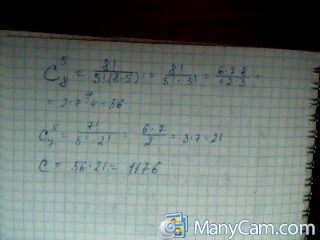 C₈⁵ = 8! / 5!(8-5)! = 8! / 5!·3! = 6·7·8 / 1·2·3 =
= 2·7·4 = 56
C₇⁵ = 7! / 5!·2! = 6·7 / 2 = 3·7 = 21
C = 56·21 = 1176
ManyCam.com